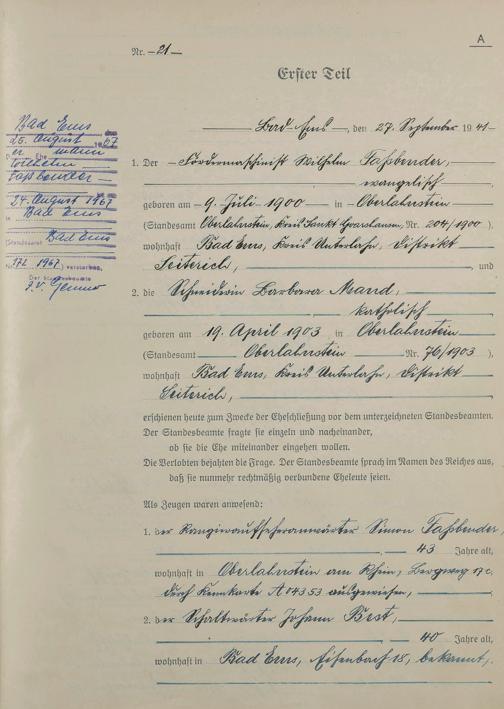 A
Nr. 21
Erster Teil
Bad Ems, den 27. September 1941
1. Der Fördermaschinist Wilhelm Faßbender,
evangelisch
geboren am 9. Juli 1900 in Oberlahnstein
(Standesamt Oberlahnstein, Kreis Sankt Goarshausen, Nr. 204/1900),
wohnhaft Bad Ems, Kreis Unterlahn, Distrikt
, und
2. die Schneiderin Barbara Maand,
katholisch
geboren am 19. April 1903 in Oberlahnstein
(Standesamt Oberlahnstein Nr. 76/1903),
wohnhaft Bad Ems, Kreis Unterlahn, Distrikt
erschienen heute zum Zwecke der Eheschließung vor dem unterzeichneten Standesbeamten.
Der Standesbeamte fragte sie einzeln und nacheinander,
ob sie die Ehe miteinander eingehen wollen.
Die Verlobten bejahten die Frage. Der Standesbeamte sprach im Namen des Reiches aus,
daß sie nunmehr rechtmäßig verbundene Eheleute seien.
Als Zeugen waren anwesend:
1. der Rangieraufseheranwärter Simon Faßbender,
43 Jahre alt,
wohnhaft in Oberlahnstein am Rhein, Bergweg 17c.
durch Kennkarte A 04353 ausgewiesen,
2. der Schaltwärter Johann Best,
40 Jahre alt,
wohnhaft in Bad Ems, Eisenbach 18, bekannt.
Bad Ems
25. August 1967
Der Ehemann
Wilhelm
Faßbender
24. August 1967
in Bad Ems
(Standesamt Bad Ems
Nr. 172 1967) verstorben.
Der Standesbeamte
J.V.